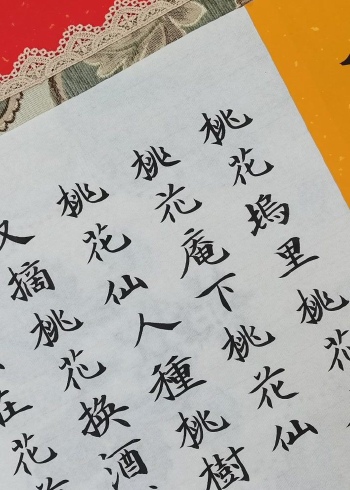 桃花塢里桃花
桃花庵下桃花仙
桃花仙人種桃樹
又摘桃花換酒
在花